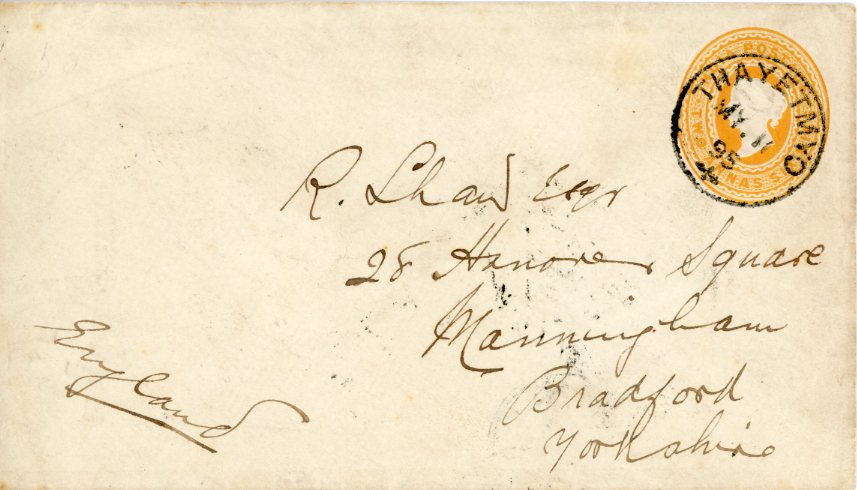 THAYETMYO
MY. 11
95
R. Shaw Esqr
28 Hanover Square
Manningham
Bradford
Yorkshire
England